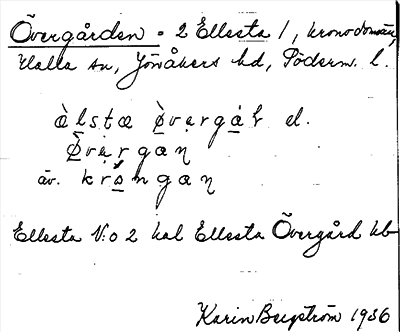 Övergården = 2 Ellesta 1, kronodomän,
Halla sn, Jönåkers hd, Söderm. l.
ὰlstæ ø̀vərgáɽ el.
Ø̀vərgaɳ
äv. króngaɳ
Ellesta N:o 2 kal Ellesta Övergård kb
Karin Bergström 1936